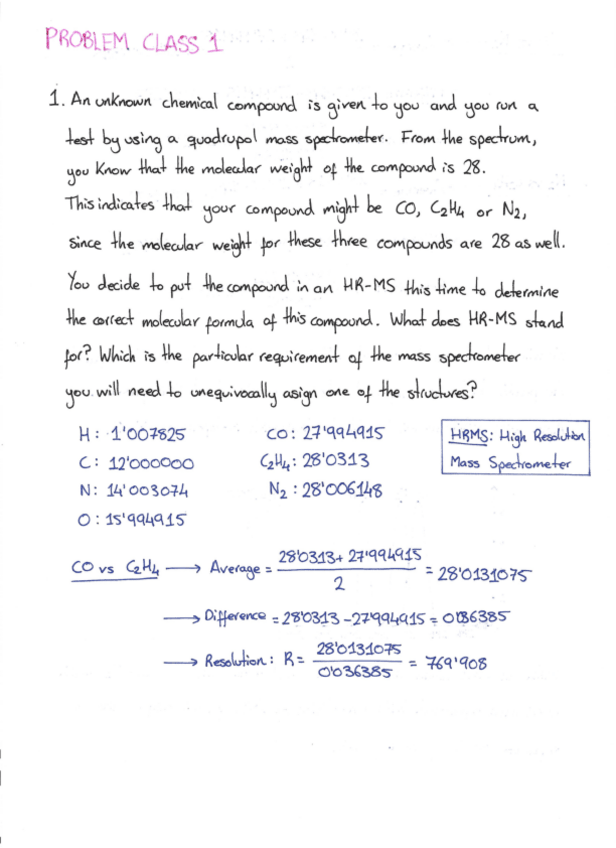 PROBLEM CLASS 1
1. An unknown chemical compound is given to you and you run a
test by using a quadrupol mass spectrometer. From the spectrum,
you know that the molecular weight of the compound is 28.
This indicates that your compound might be CO, C₂H₄ or N₂,
since the molecular weight for these three compounds are 28 as well.
You decide to put the compound in an HR-MS this time to determine
the correct molecular formula of this compound. What does HR-MS stand
for? Which is the particular requirement of the mass spectrometer
you will need to unequivocally asign one of the structures?
H: 1'007825
C: 12'000000
N: 14'003074
O: 15'994915
CO: 27'994915
C₂H₄: 28'0313
N₂: 28'006148
HRMS: High Resolution
Mass Spectrometer
CO vs C₂H₄ → Average = (28'0313 + 27'994915) / 2 = 28'0131075
→ Difference = 28'0313 - 27'994915 = 0'036385
→ Resolution: R = 28'0131075 / 0'036385 = 769'908